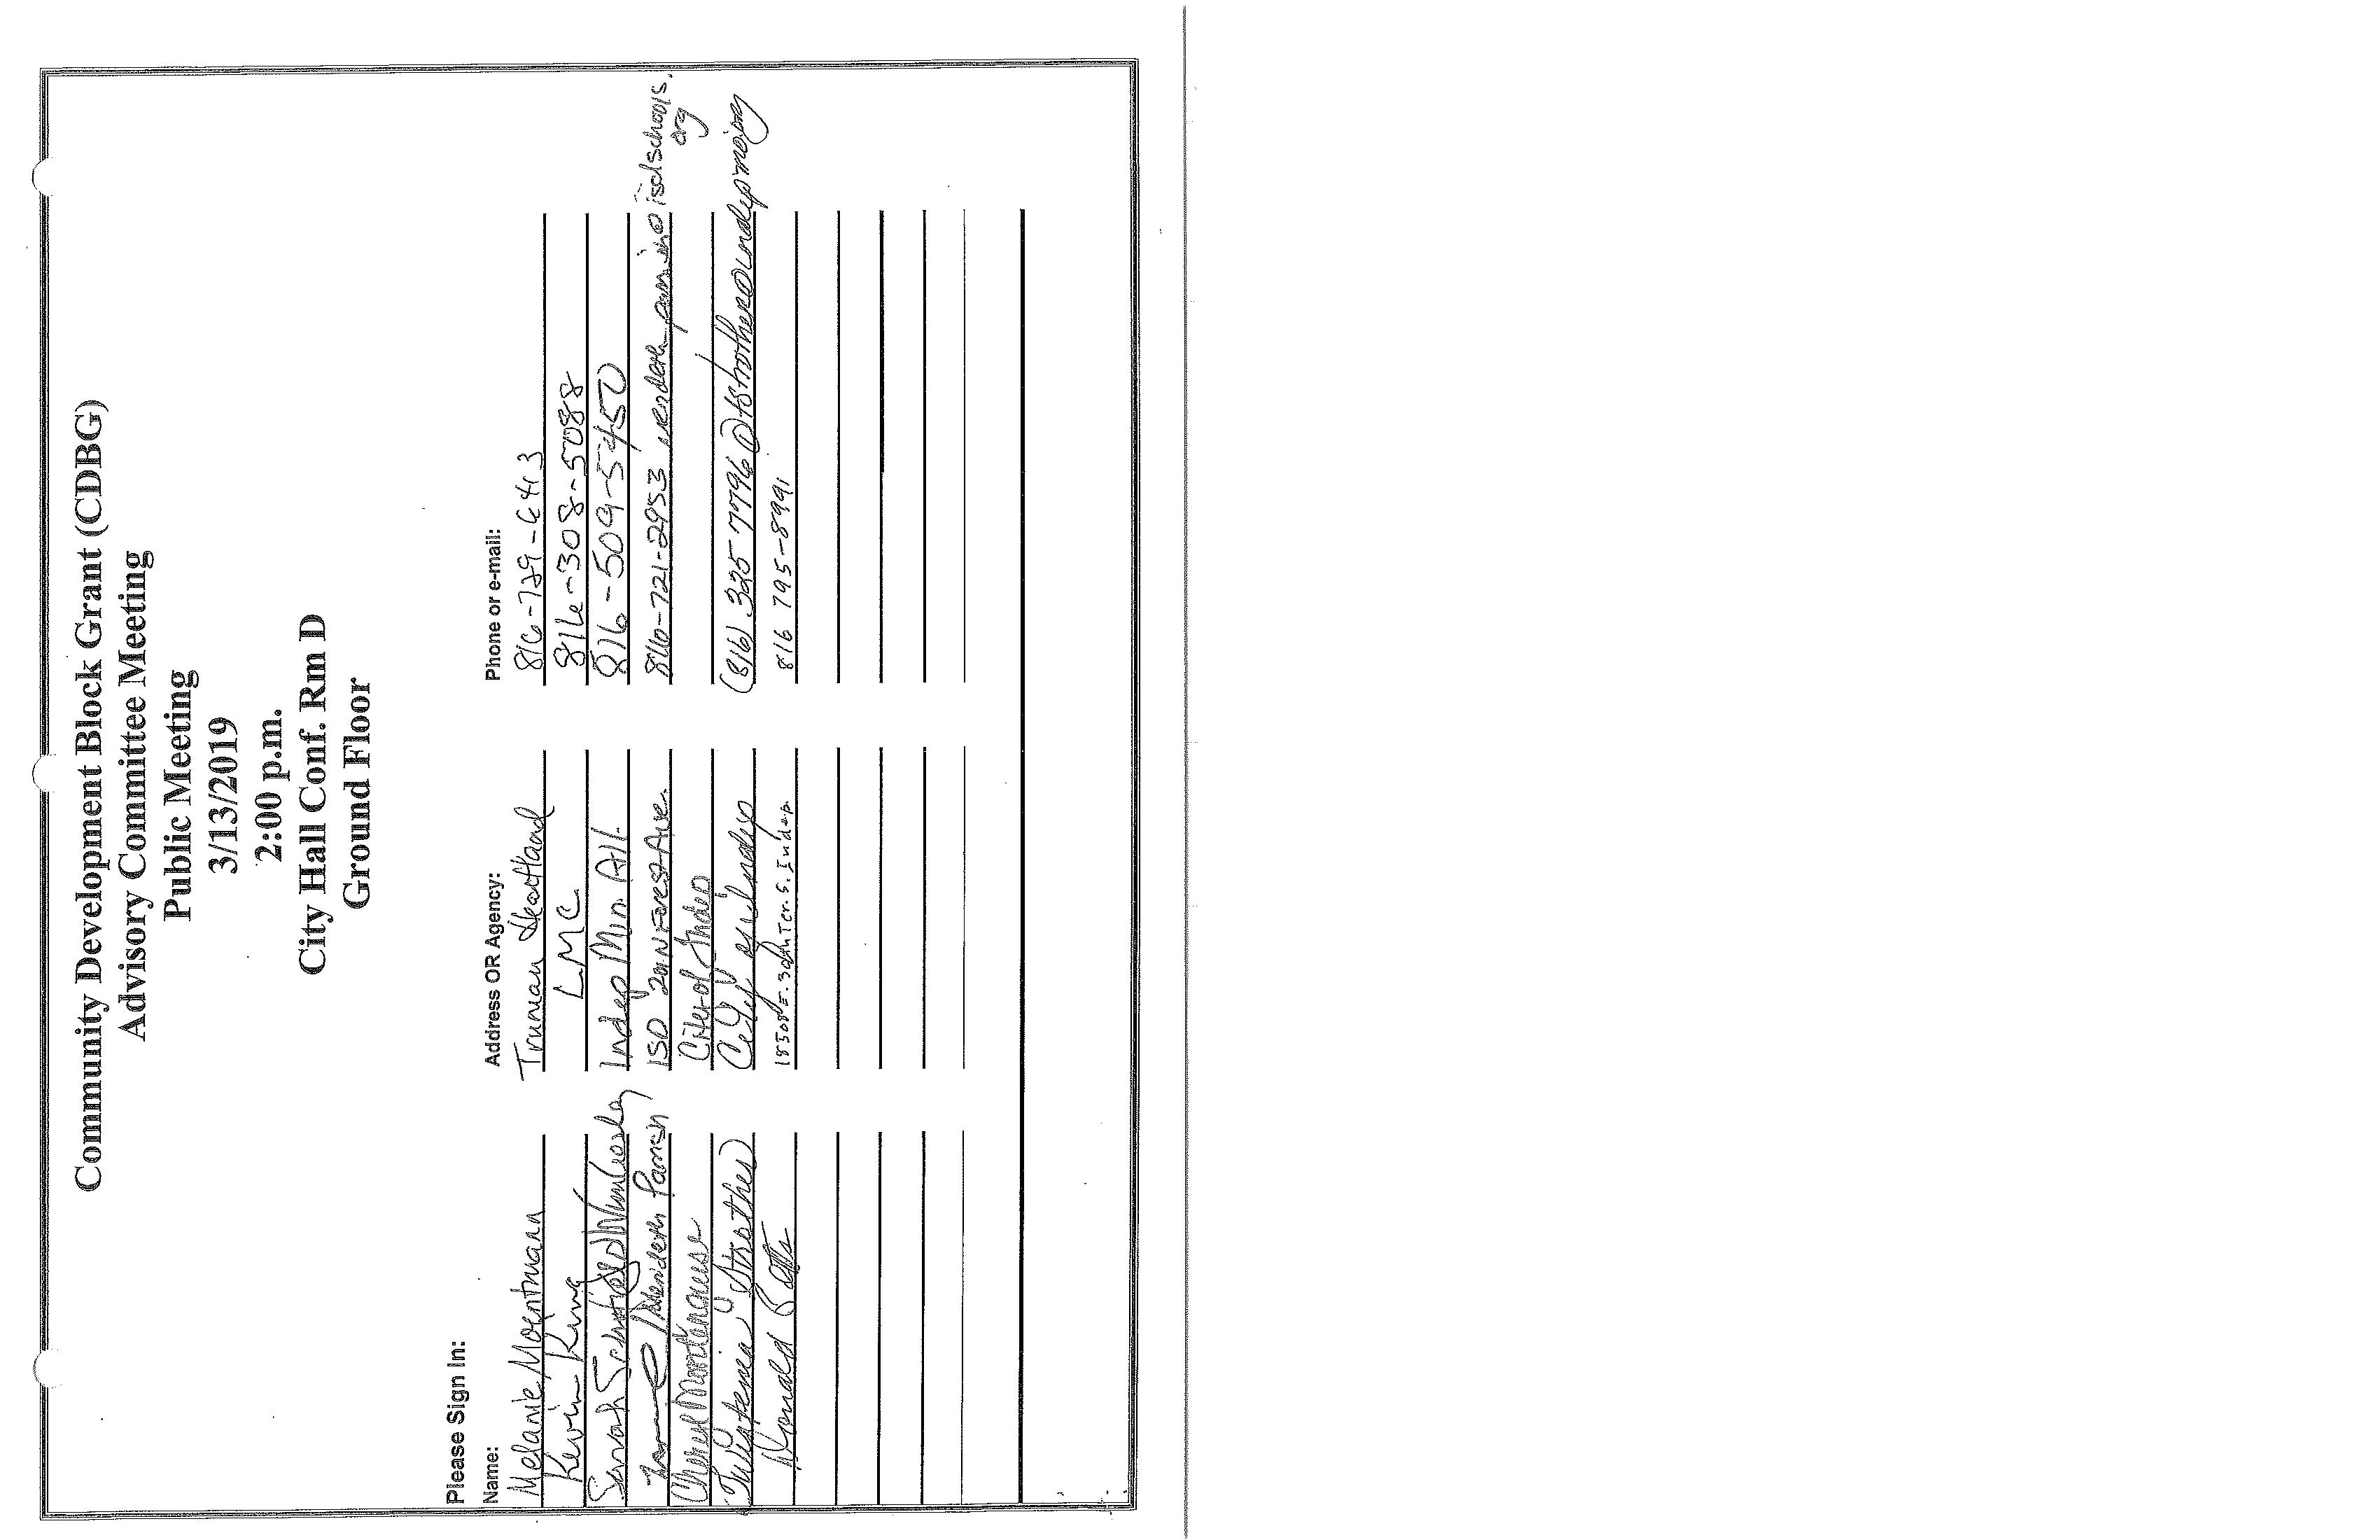 Community Development Block Grant (CDBG)
Advisory Committee Meeting
Public Meeting
3/13/2019
2:00 p.m.
City Hall Conf. Rm D
Ground Floor
Please Sign In:
Name: Address OR Agency: Phone or e-mail:
Melanie Moentmann Truman Heartland 816-729-6413
Kevin King LMC 816-308-5088
Sarah Wimberley Indep Min. All. 816-509-5450
Merideth Parrish ISD 201 N Forest Ave. 816-721-2953 merideth_parrish@isdschools.
org
Cheryl City of Indep
Strother City of Indep (816) 325 7796 tstrother@indepmo.org
Donald Potts 18508 E. 30th Ter. S. Indep. 816 795-8991